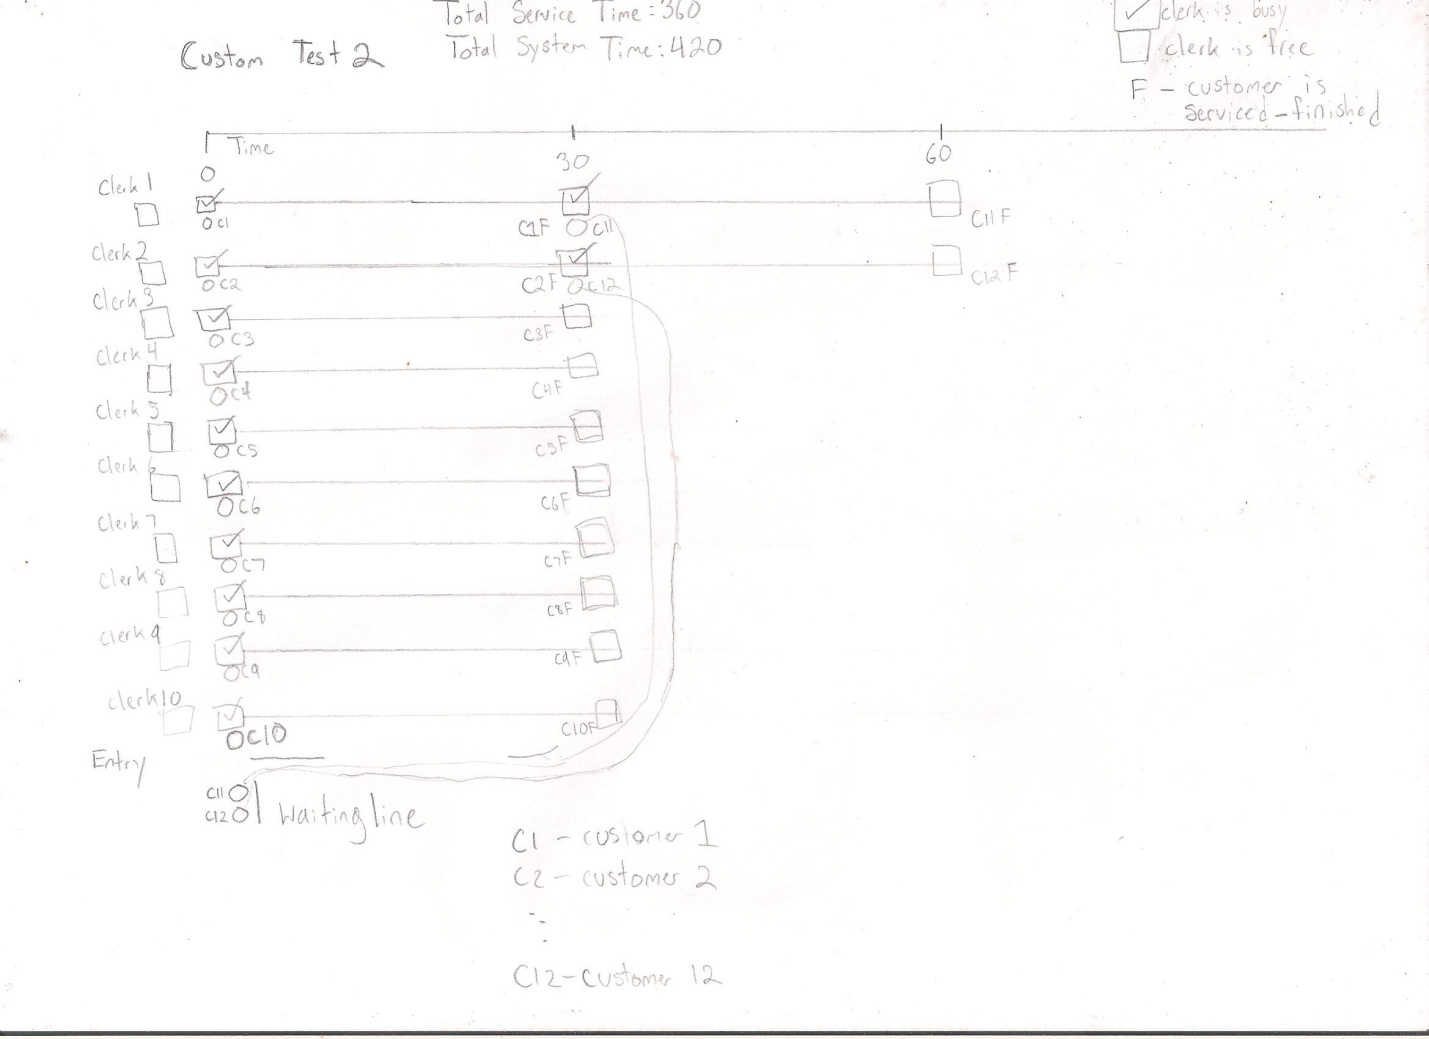 Total Service Time: 360
Custom Test 2
Total System Time: 420
clerk is busy
clerk is free
F - customer is
serviced-finished
Time
0
30
60
Clerk 1
C1
C1F
C11
C11F
Clerk 2
C2
C2F
C12
C12F
Clerk 3
C3
C3F
Clerk 4
C4
C4F
Clerk 5
C5
C5F
Clerk 6
C6
C6F
Clerk 7
C7
C7F
Clerk 8
C8
C8F
Clerk 9
C9
C9F
Clerk 10
C10
C10F
Entry
C11
C12
Waiting line
C1 - customer 1
C2 - customer 2
C12 - customer 12